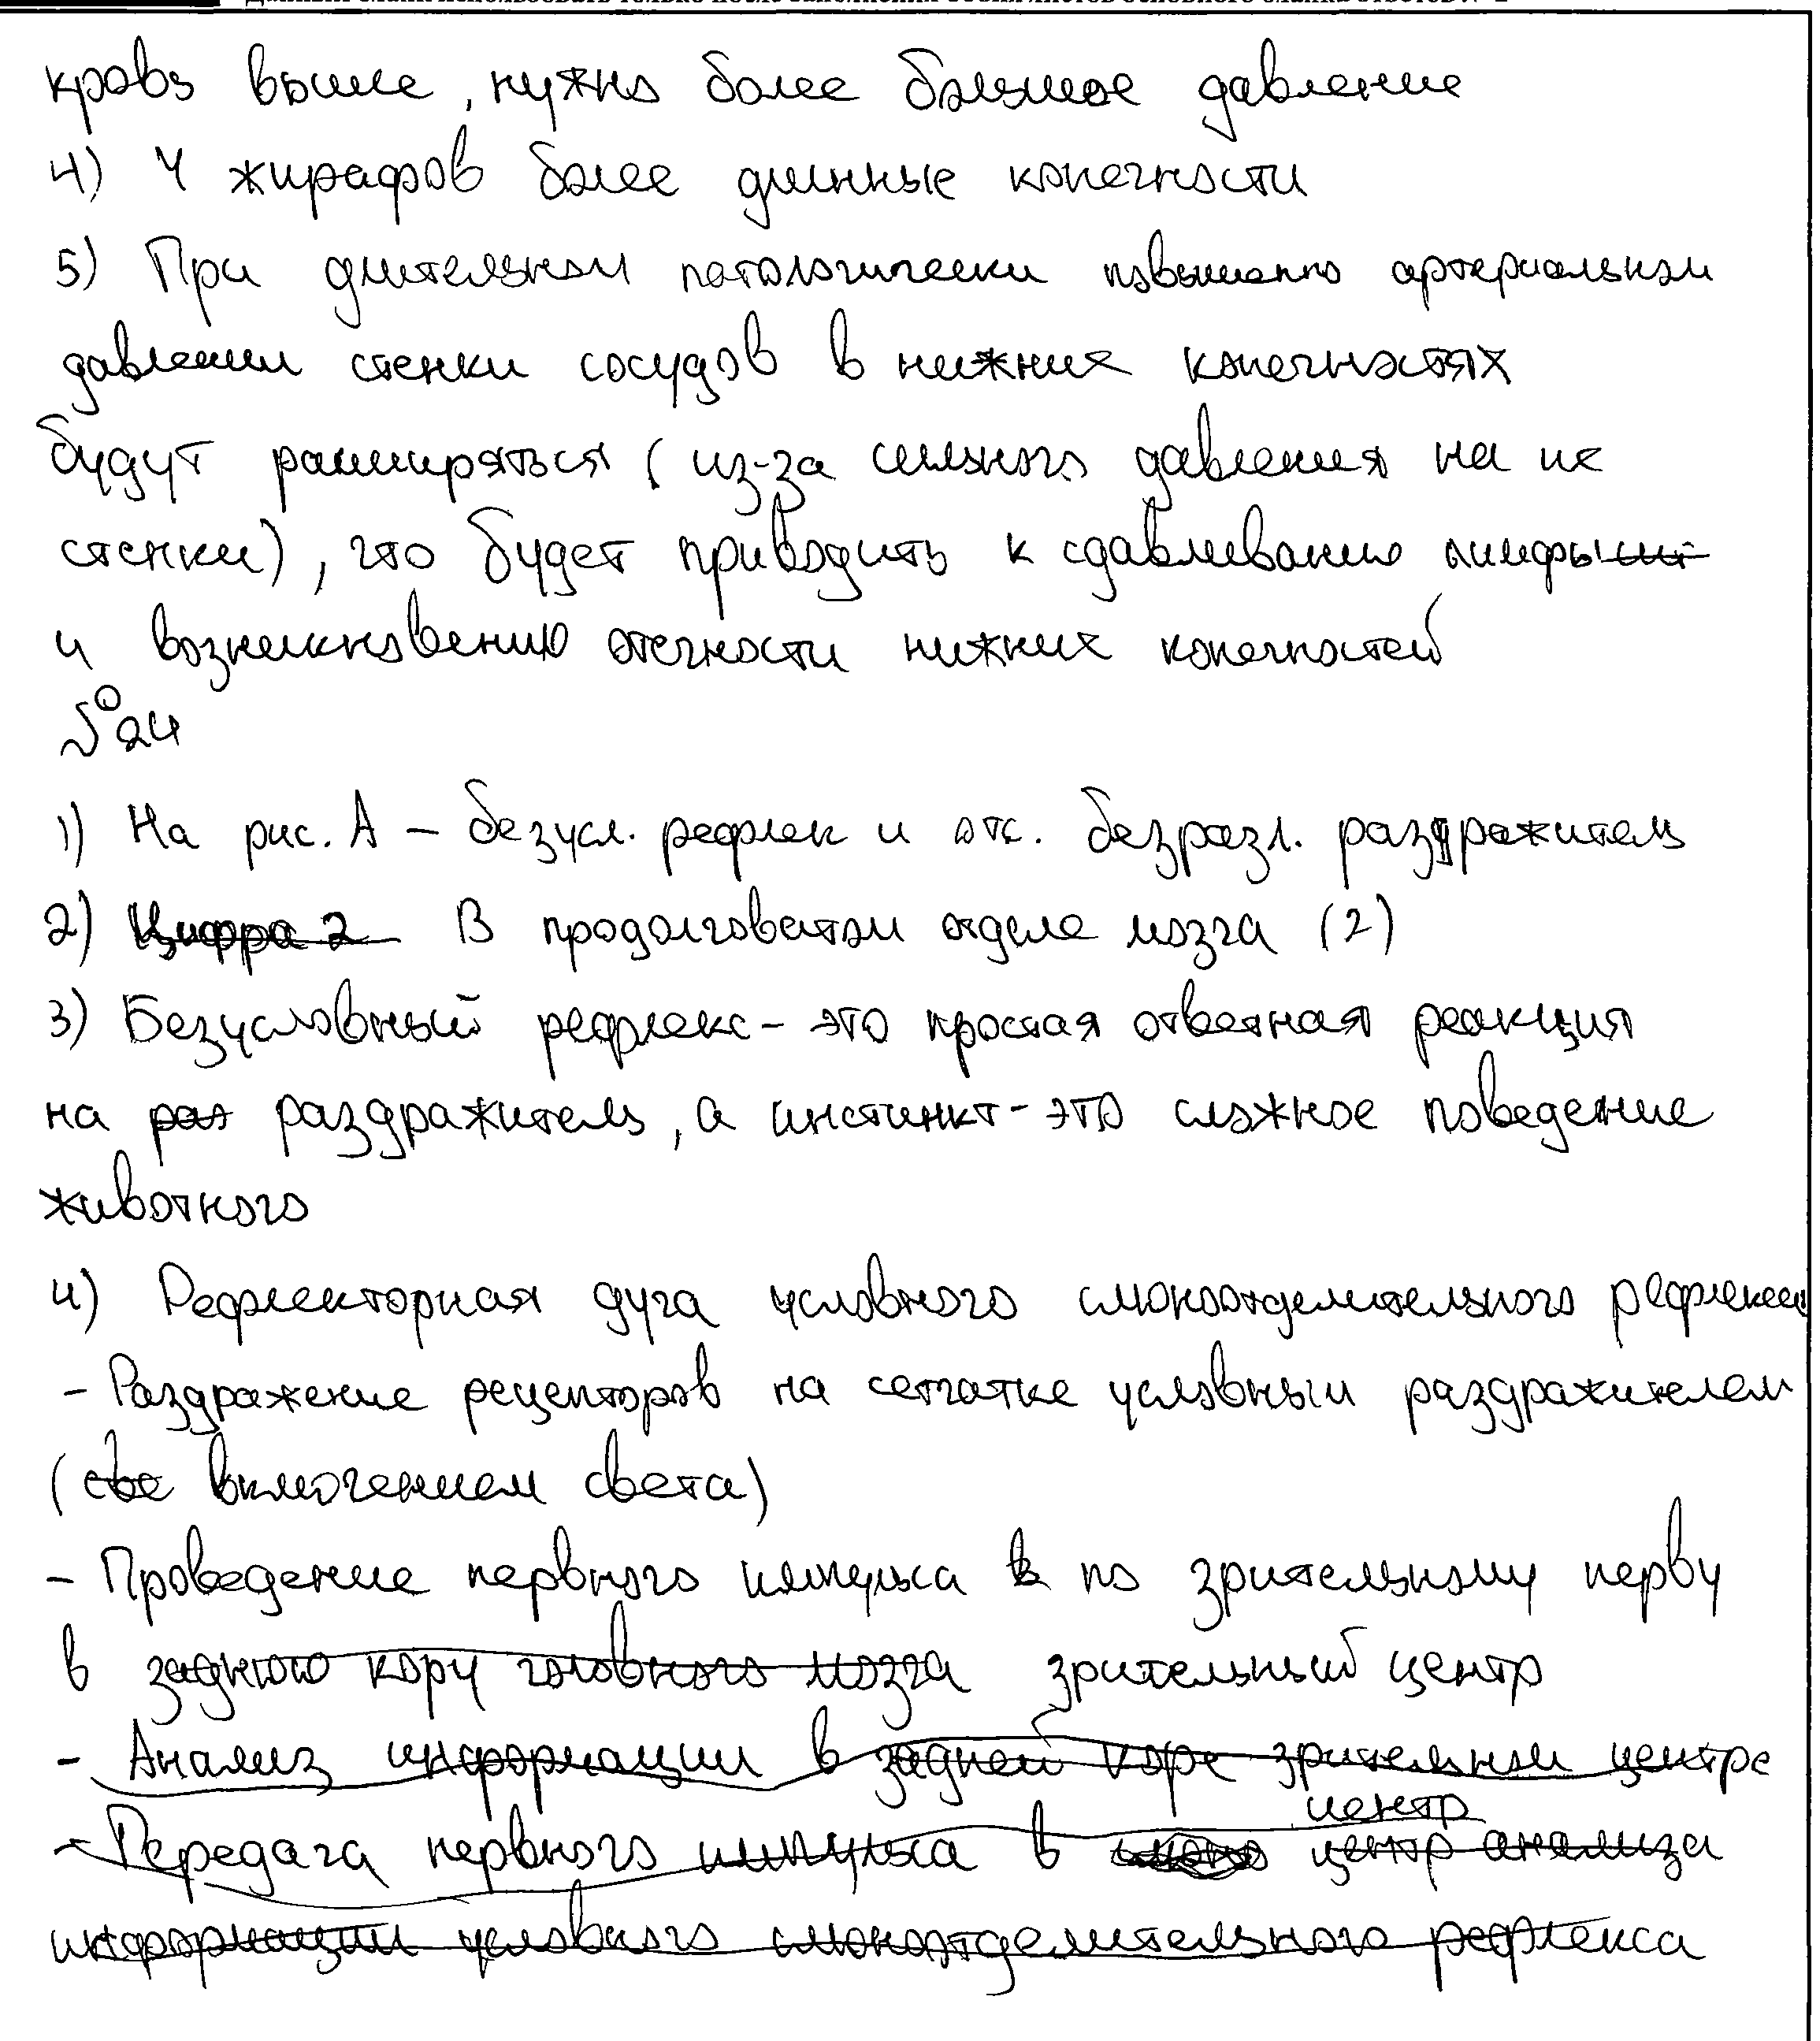 кровь выше, нужно более большое давление
4) У жирафов более длинные конечности
5) При длительном патологически повышенно артериальном
давлении стенки сосудов в нижних конечностях
будут расширяться (из-за сильного давления на их
стенки), что будет приводить к сдавливанию лимфы
и возникновению отечности нижних конечностей
№24
1) На рис. А – безусл. рефлек и отс. безразл. раздражитель
2) Цифра 2 В продолговатом отделе мозга (2)
3) Безусловный рефлекс - это простая ответная реакция
на раз раздражитель, а инстинкт - это сложное поведение
животного
4) Рефлекторная дуга условного слюноотделительного рефлекса
- Раздражение рецепторов на сетчатке условным раздражителем
(све включением света)
- Проведение нервного импульса в по зрительному нерву
в заднюю кору головного мозга зрительный центр
- Анализ информации в задней коре зрительном центре
центр
- Передача нервного импульса в центр анализа
информации условного слюноотделительного рефлекса